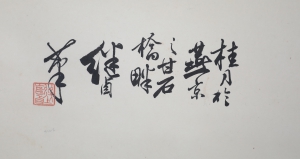 桂月於
燕京
之甘石
橋畔
继自